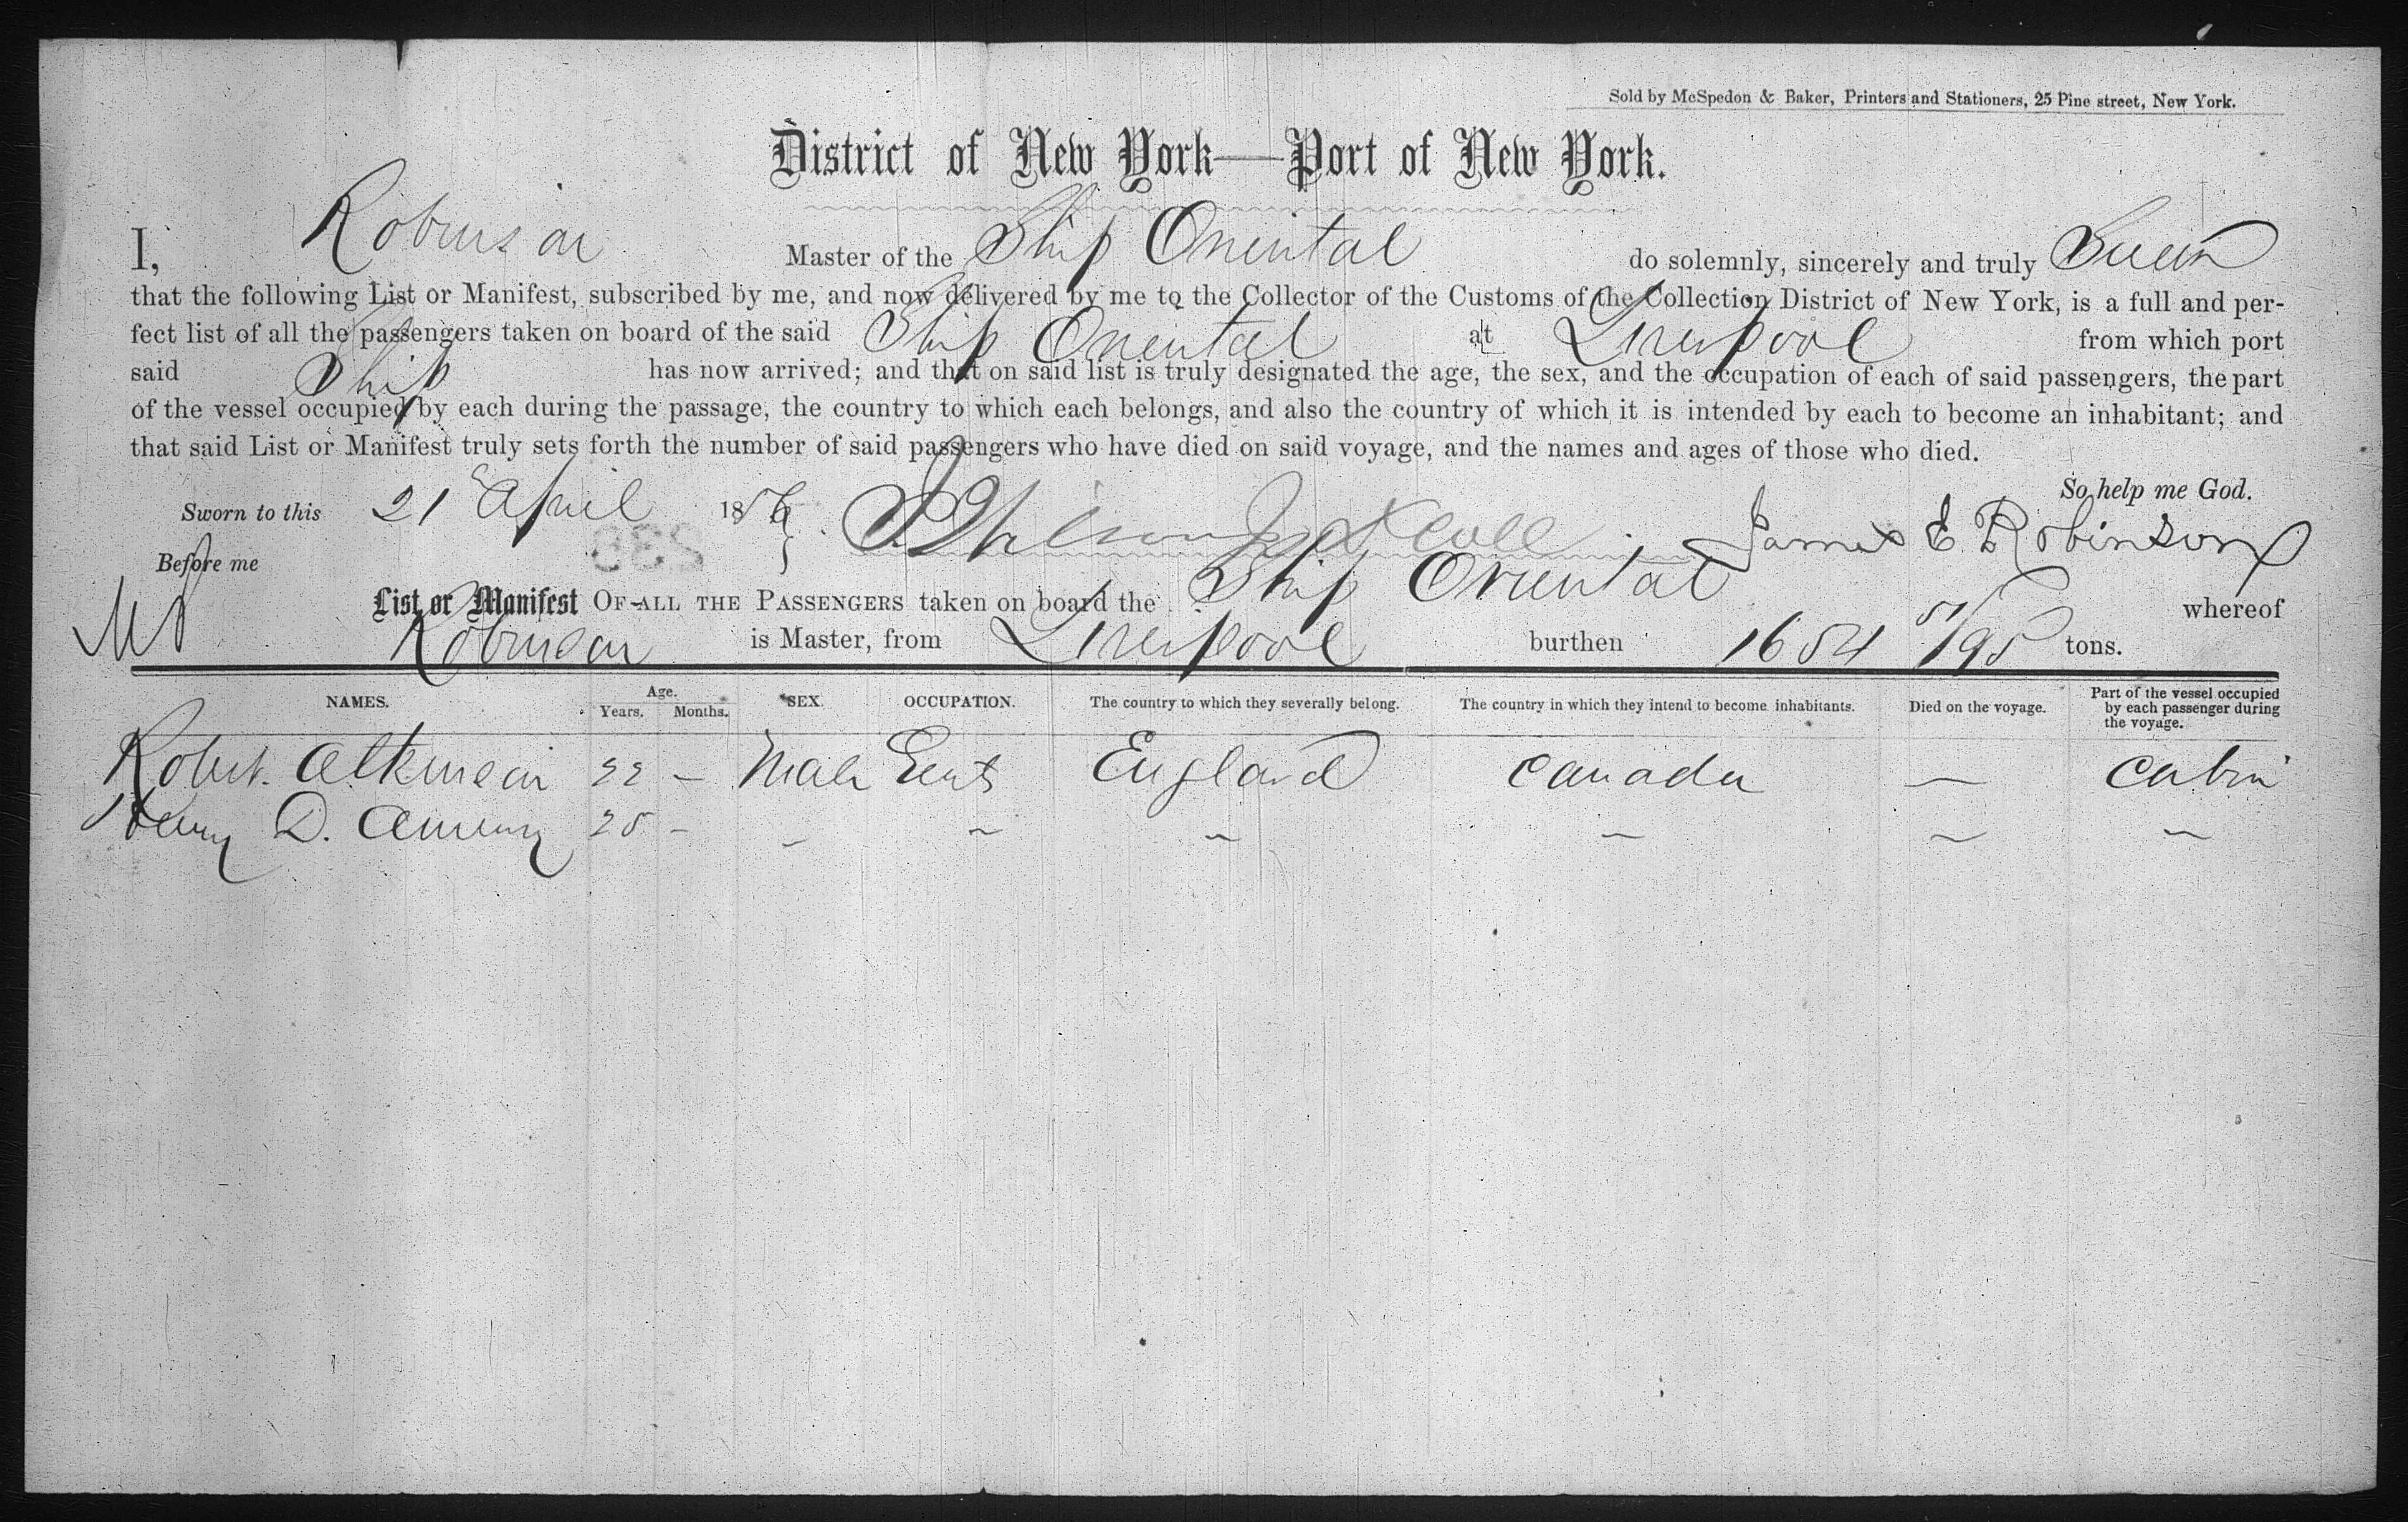 Sold by McSpedon & Baker, Printers and Stationers, 25 Pine street, New York.
District of New York—Port of New York.
I, Robinson Master of the Ship Oriental do solemnly, sincerely and truly Swear
that the following List or Manifest, subscribed by me, and now delivered by me to the Collector of the Customs of the Collection District of New York, is a full and per-
fect list of all the passengers taken on board of the said Ship Oriental at Liverpool from which port
said Ship has now arrived; and that on said list is truly designated the age, the sex, and the occupation of each of said passengers, the part
of the vessel occupied by each during the passage, the country to which each belongs, and also the country of which it is intended by each to become an inhabitant; and
that said List or Manifest truly sets forth the number of said passengers who have died on said voyage, and the names and ages of those who died.
So help me God.
Sworn to this 21 April 1856 James E Robinson
Before me
List or Manifest OF ALL THE PASSENGERS taken on board the Ship Oriental whereof
Robinson is Master, from Liverpool burthen 1654 51/95 tons.
NAMES. Age. Years. Months. SEX. OCCUPATION. The country to which they severally belong. The country in which they intend to become inhabitants. Died on the voyage. Part of the vessel occupied by each passenger during the voyage.
Robert. Atkinson 22 — Male Gent England Canada — Cabin
Henry D. 25 -